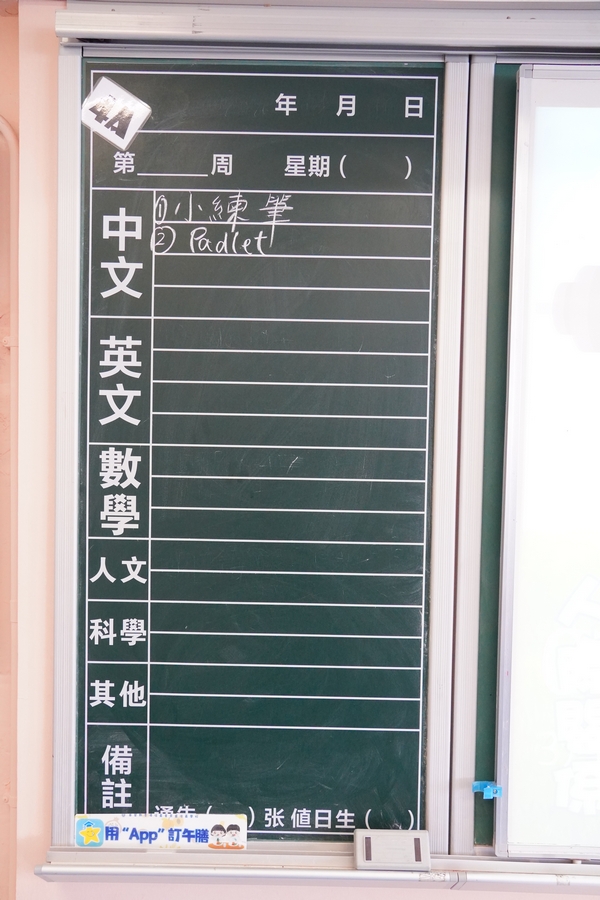 4A
年 月 日
第______周 星期( )
中文
①小練筆
②Padlet
英文
數學
人文
科學
其他
備註
通告( )张 值日生( )
用“App”訂午膳